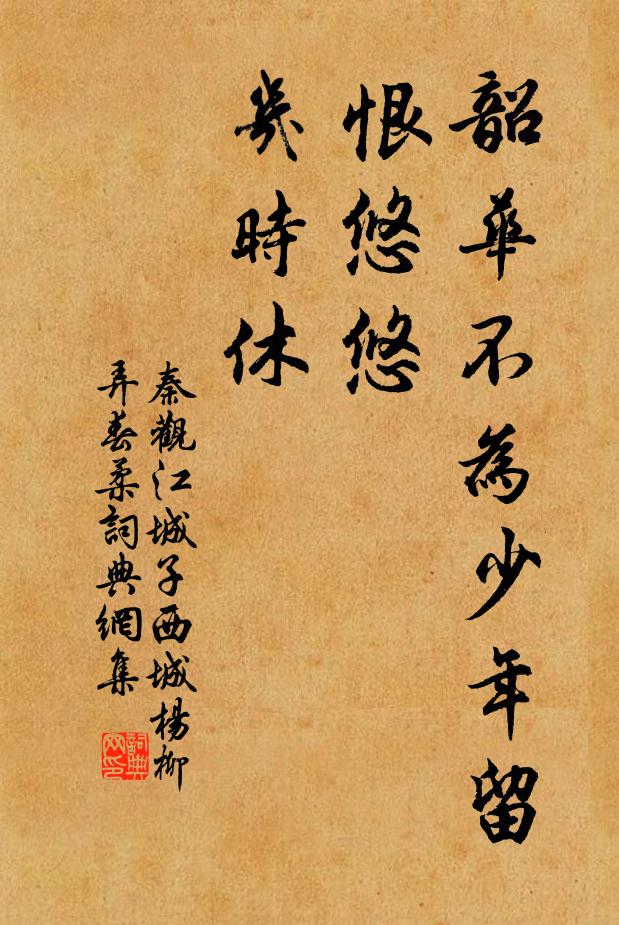 韶華不為少年留
恨悠悠
幾時休
秦觀江城子西城楊柳
弄春柔詞典網集
詞典網印